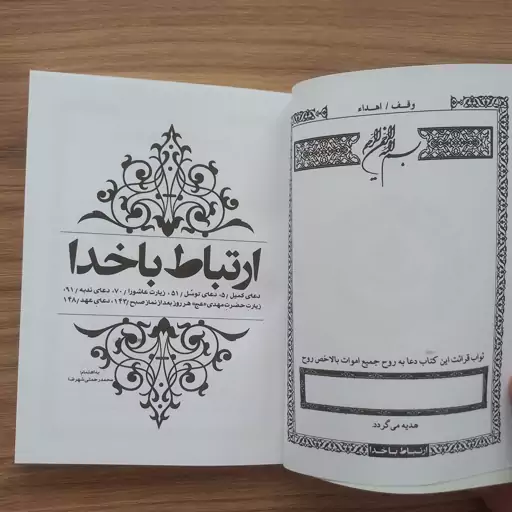 وقف / اهداء
بسم الله الرحمن الرحیم
ثواب قرائت این کتاب دعا به روح جمیع اموات بالاخص روح
هدیه می‌گردد.
ارتباط با خدا
ارتباط با خدا
دعای کمیل /۵، دعای توسّل /۵۱، زیارت عاشورا /۷۰، دعای ندبه /۹۱
زیارت حضرت مهدی «عج» هر روز بعد از نماز صبح /۱۴۲، دعای عهد /۱۴۸
به اهتمام:
محمد رحمتی شهرضا